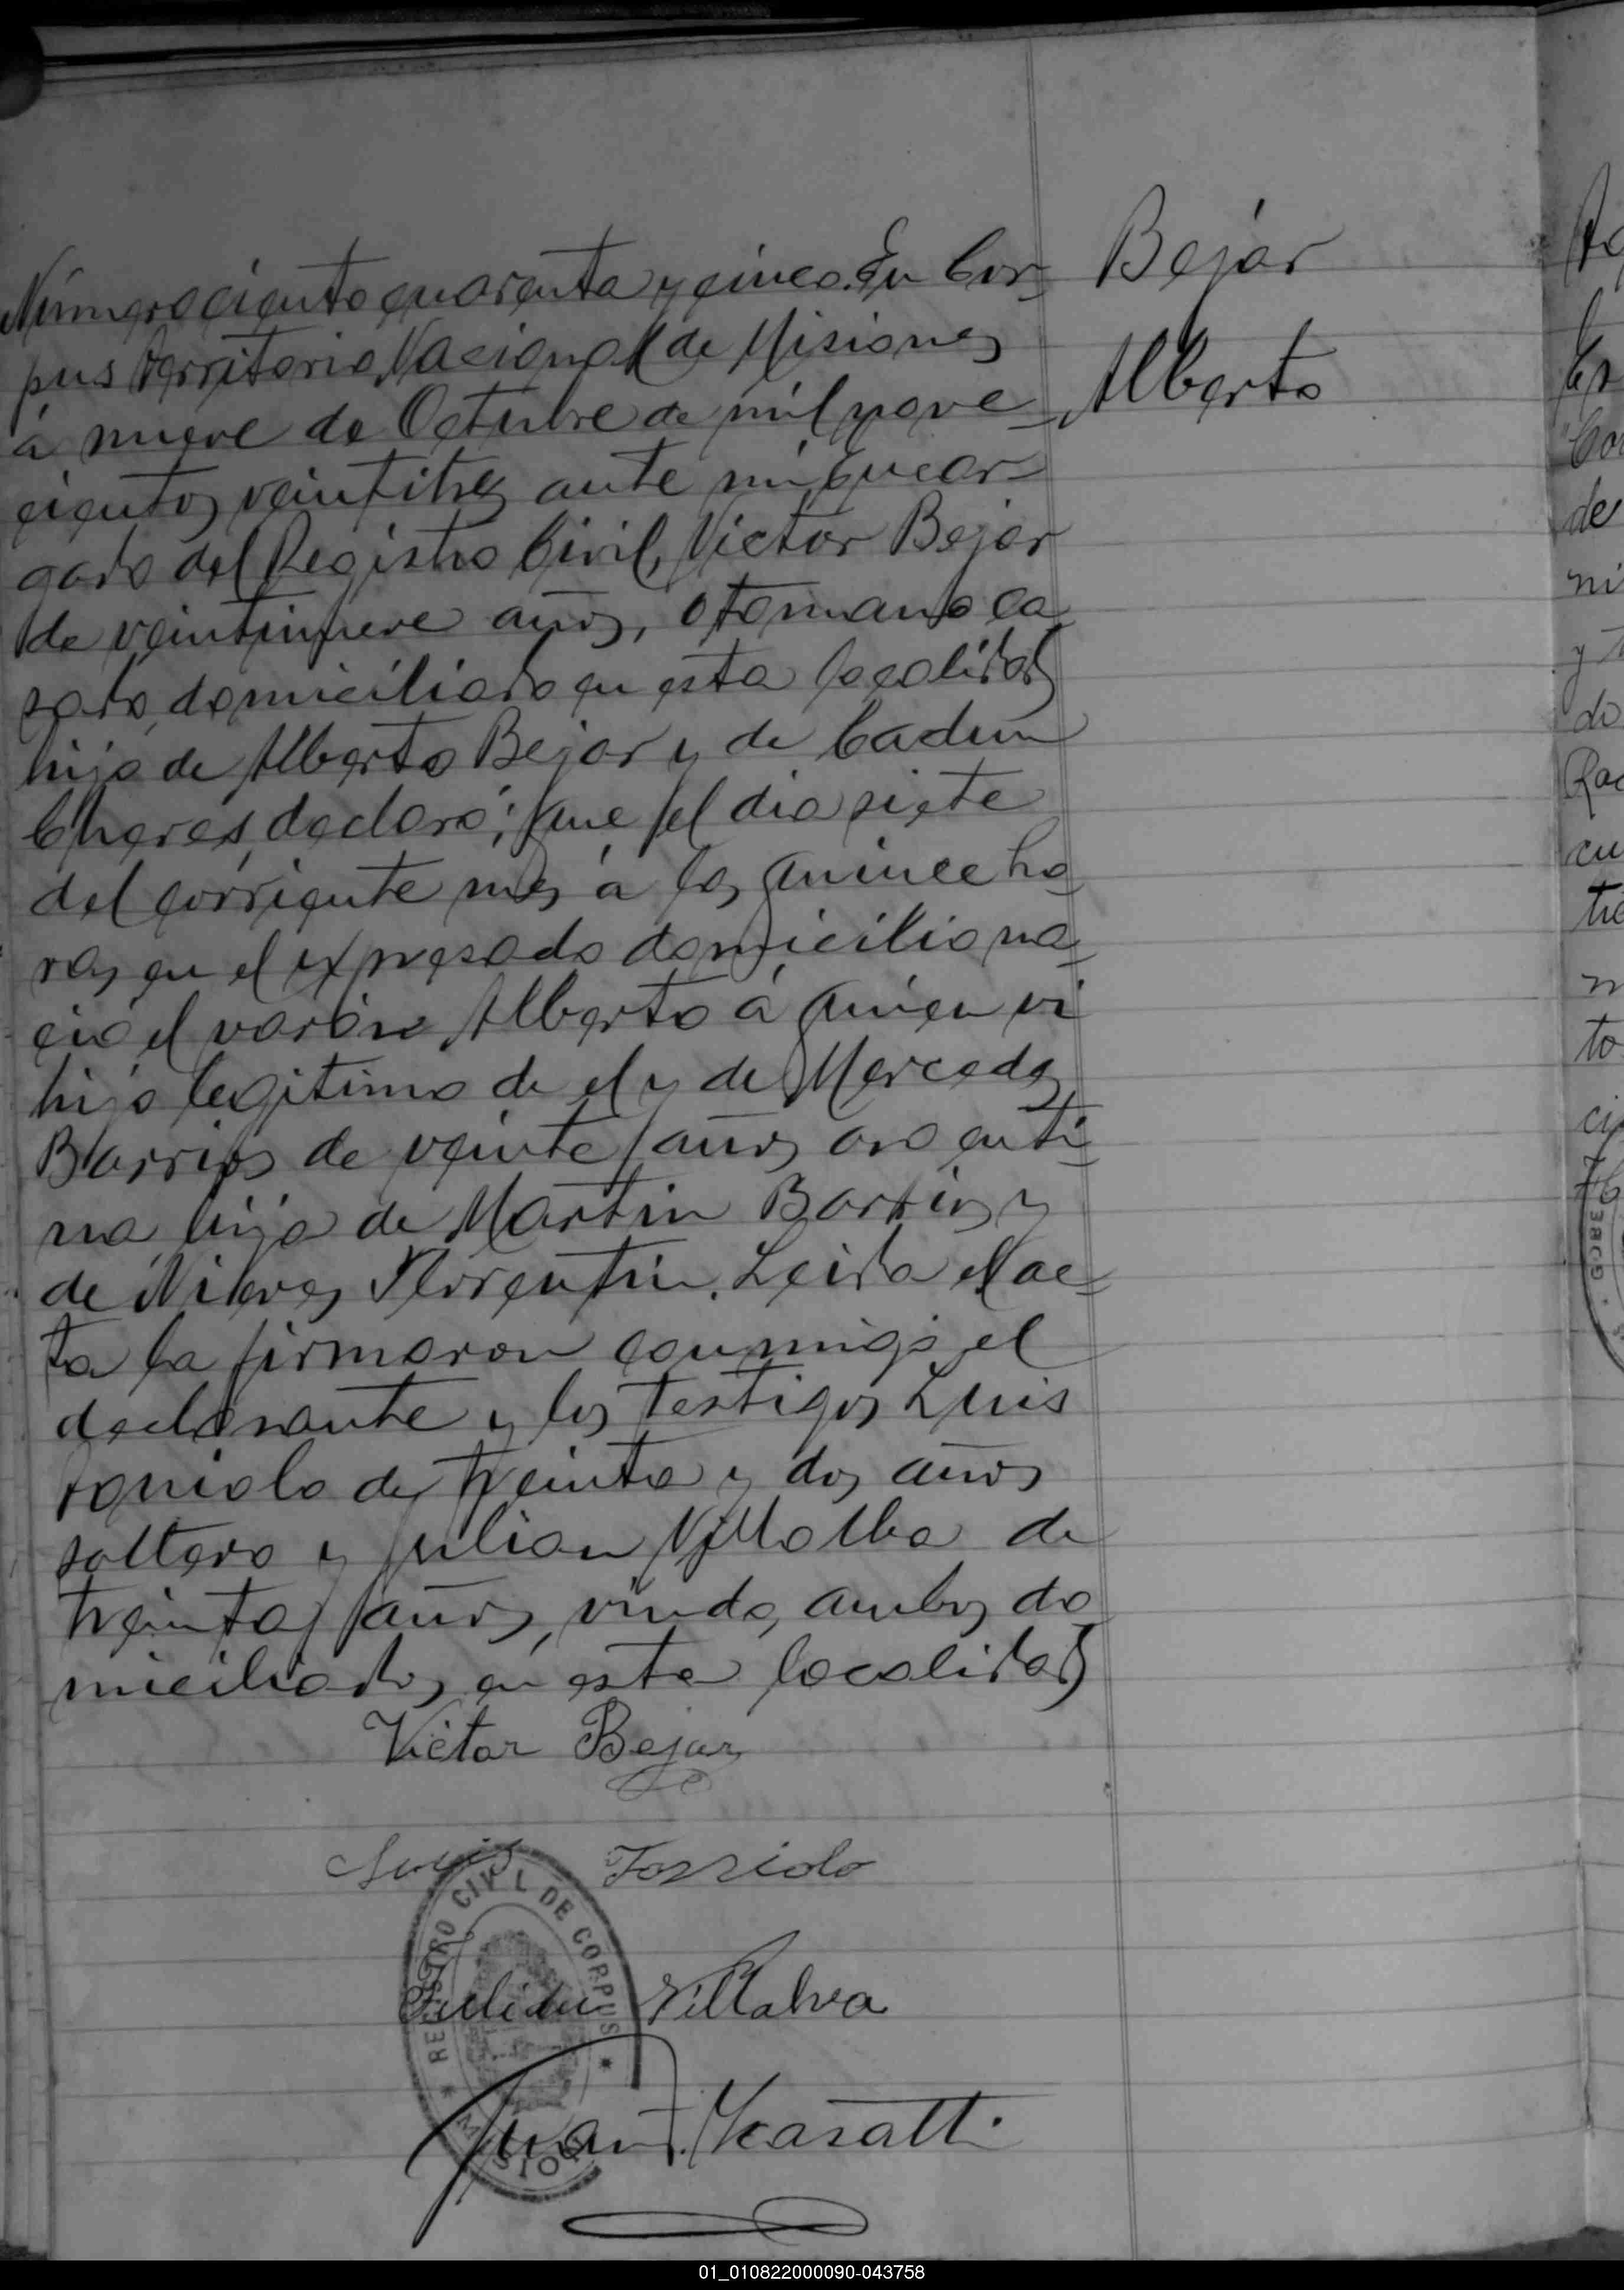 Número ciento cuarenta y cinco. En Cor-
pus Territorio Nacional de Misiones
á nueve de Octubre de mil nove-
cientos veintitres ante mi Encar-
gado del Registro Civil, Victor Bejar
de veintinueve años, otomano ca-
sado, domiciliado en esta localidad
hijo de Alberto Bejar y de Cadun
Cheres, declaró; que el dia siete
del corriente mes á las quince ho-
ras en el expresado domicilio na-
ció el varon Alberto á quien vi
hijo legitimo de el y de Mercedes
Barrios de veinte años argenti-
na hija de Martin Barrios y
de Nieves Florentin. Leida el ac-
ta la firmaron conmigo el
declarante y los testigos Luis
de treinta y dos años
soltero y Julian Villalba de
treinta años, viudo, ambos do-
miciliados en esta localidad
Victor Bejar
Luis
Julian Villalva
Juan
Bejar
Alberto
REGISTRO CIVIL DE CORPUS
* MISIONES *
01_010822000090-043758